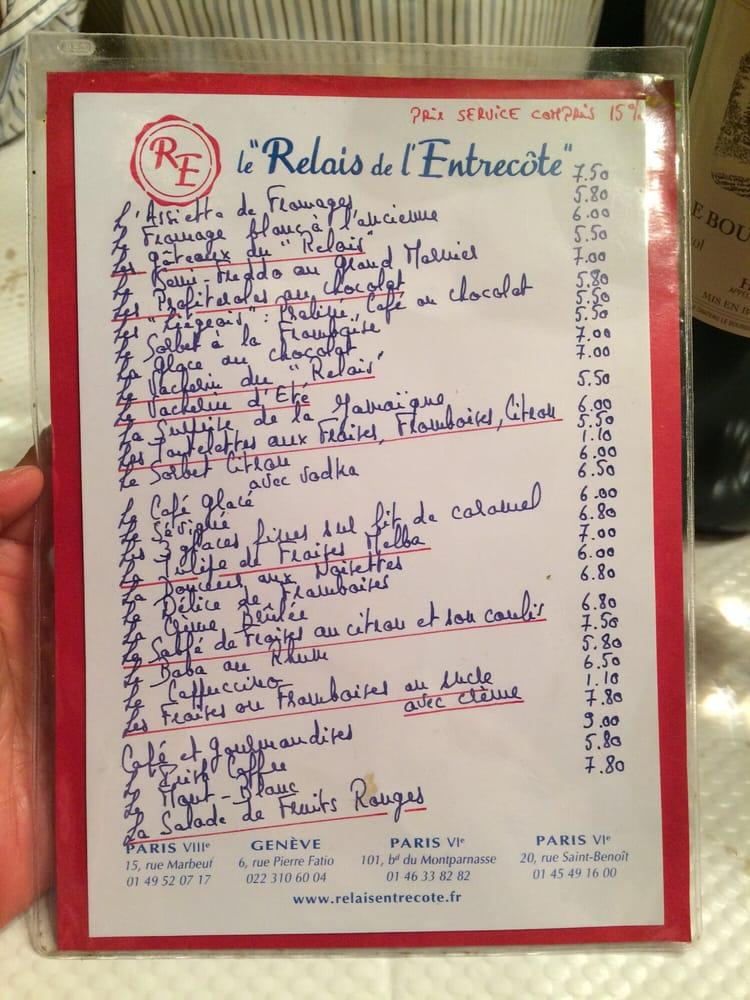 PRIX SERVICE COMPRIS 15%
RE
le "Relais de l'Entrecôte"
L'Assiette de Fromages 7.50
Le Fromage blanc à l'ancienne 5.80
Les gâteaux du "Relais" 6.00
Le Semi-Freddo au Grand Marnier 5.50
Les Profiteroles au chocolat 7.00
Les "Liégeois": Praliné, Café ou chocolat 5.80
Le Sorbet à la Framboise 5.50
La Glace au chocolat 5.50
Le Vacherin du "Relais" 7.00
Le Vacherin d'Eté 7.00
La Surprise de la Jamaïque 5.50
Les Tartelettes aux Fraises, Framboises, Citron 6.00
Le Sorbet Citron 5.50
avec vodka 1.10
Le Café glacé 6.00
Le Sévigné 6.50
Les 3 glaces fines sur lit de caramel 6.00
La Tulipe de Fraises Melba 6.80
La Douceur aux Noisettes 7.00
Le Délice de Framboises 6.00
La Crème Brûlée 6.80
Le Sablé de Fraises au citron et son coulis 6.80
Le Baba au Rhum 7.50
Le Cappuccino 5.80
Les Fraises ou Framboises au sucre 6.50
avec crème 1.10
Café et gourmandises 7.80
L'Irish Coffee 9.00
Le Mont-Blanc 5.80
La Salade de Fruits Rouges 7.80
PARIS VIIIe
15, rue Marbeuf
01 49 52 07 17
GENÈVE
6, rue Pierre Fatio
022 310 60 04
PARIS VIe
101, bd du Montparnasse
01 46 33 82 82
PARIS VIe
20, rue Saint-Benoît
01 45 49 16 00
www.relaisentrecote.fr
E BOU
MIS EN B